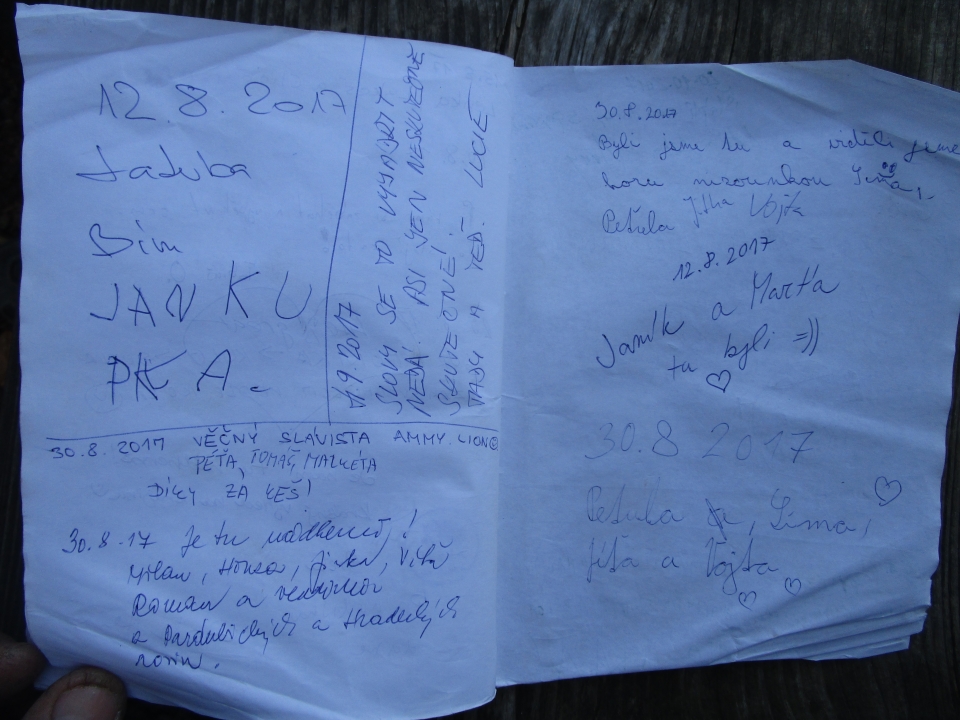 12.8.2017
Jakuba
Bim
JAN KU
PKA.
1.9.2017
SLOVY SE TO VYJÁDŘIT
NEDÁ! ASI JEN NESKUTEČNĚ
SKUTEČNÉ!
TADY A TEĎ. LUCIE
30.8.2017 VĚČNÝ SLÁVISTA AMMY.LION
PÉŤA, TOMÁŠ, MARKÉTA
DÍKY ZA KEŠ!
30.8.17 Je tu nádherně!
Milan, Honza, Jirka, Víťa
Roman a
a Pardubických a Hradeckých
novin.
30.8.2017
Byli jsme tu a viděli jsme
horu Sima,
Petula Jitka Vojta
12.8.2017
Janík a Marťa
tu byli =))
30.8 2017
Petula, Sima,
Jíťa a Vojta